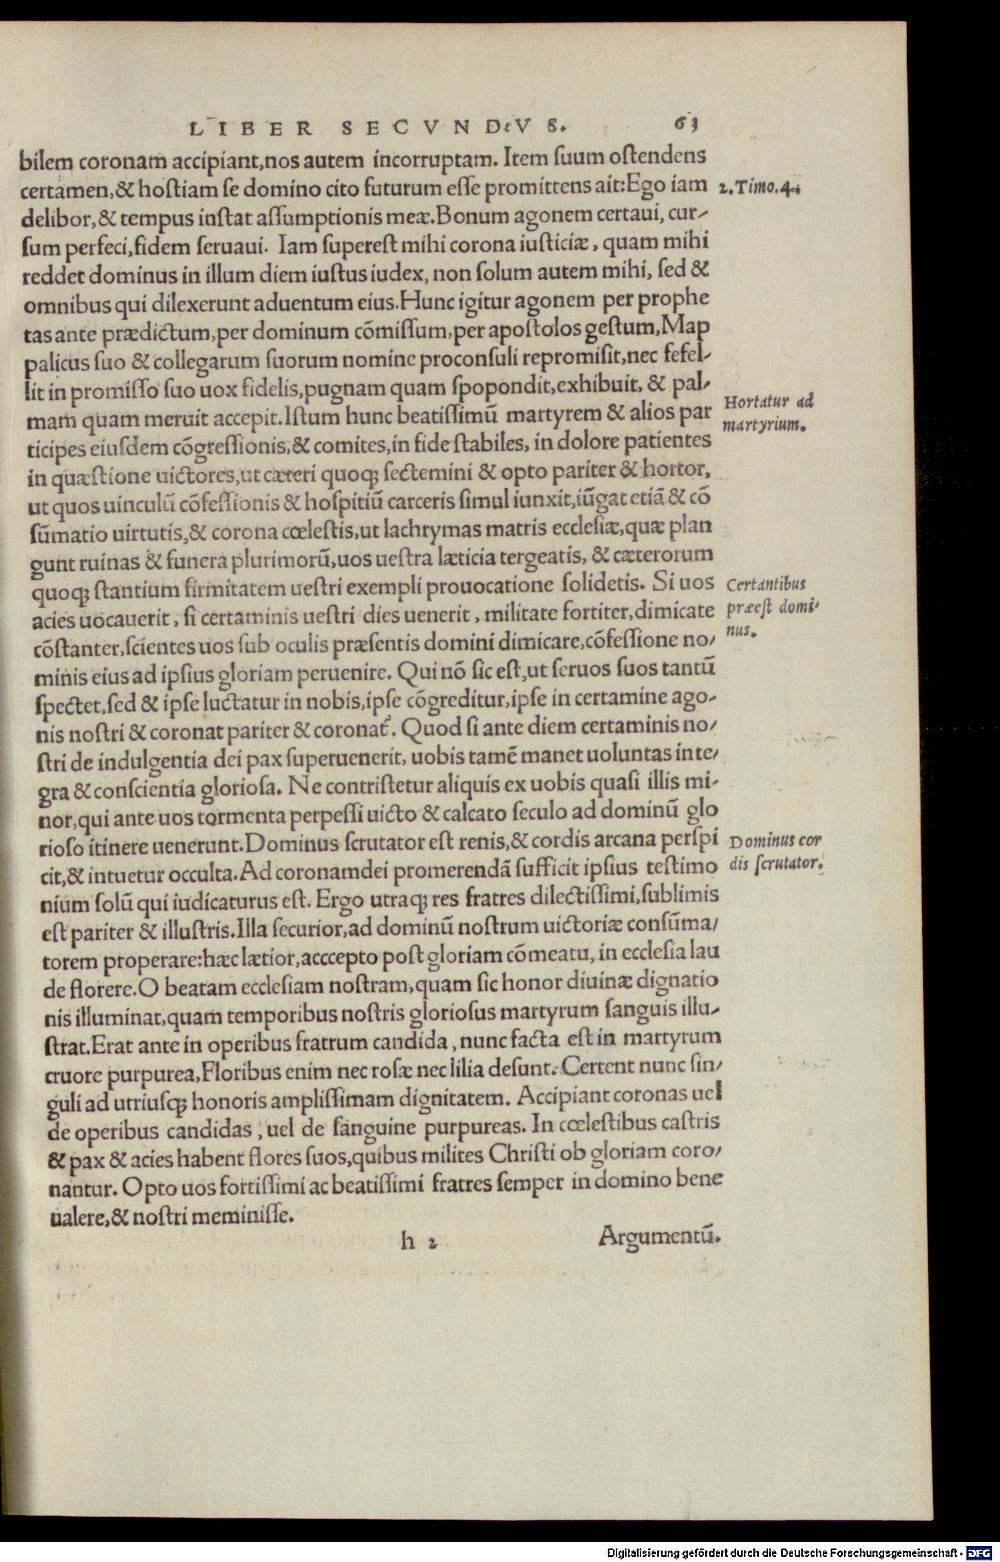 LIBER SECVNDVS. 63
bilem coronam accipiant,nos autem incorruptam. Item ſuum oſtendens
certamen,& hoſtiam ſe domino cito futurum eſſe promittens ait:Ego iam
2.Timo.4.
delibor,& tempus inſtat aſſumptionis meæ.Bonum agonem certaui, cur⸗
ſum perfeci,fidem ſeruaui. Iam ſupereſt mihi corona iuſticiæ, quam mihi
reddet dominus in illum diem iuſtus iudex, non ſolum autem mihi, ſed &
omnibus qui dilexerunt aduentum eius.Hunc igitur agonem per prophe
tas ante prædictum,per dominum cõmiſſum,per apoſtolos geſtum,Map
palicus ſuo & collegarum ſuorum nomine proconſuli repromiſit,nec fefel⸗
lit in promiſſo ſuo uox fidelis,pugnam quam ſpopondit,exhibuit, & pal⸗
mam quam meruit accepit.Iſtum hunc beatiſſimũ martyrem & alios par
Hortatur ad
martyrium.
ticipes eiuſdem cõgreſſionis,& comites,in fide ſtabiles, in dolore patientes
in quæſtione uictores,ut cæteri quoqꝫ ſectemini & opto pariter & hortor,
ut quos uinculũ cõfeſſionis & hoſpitiũ carceris ſimul iunxit,iũgat etiã & cõ
ſũmatio uirtutis,& corona cœleſtis,ut lachrymas matris eccleſiæ,quæ plan
gunt ruinas & funera plurimorũ,uos ueſtra læticia tergeatis, & cæterorum
quoqꝫ ſtantium firmitatem ueſtri exempli prouocatione ſolidetis. Si uos
acies uocauerit, ſi certaminis ueſtri dies uenerit, militate fortiter,dimicate
Certantibus
præeſt domi⸗
nus.
cõſtanter,ſcientes uos ſub oculis præſentis domini dimicare,cõfeſſione no⸗
minis eius ad ipſius gloriam peruenire. Qui nõ ſic eſt,ut ſeruos ſuos tantũ
ſpectet,ſed & ipſe luctatur in nobis,ipſe cõgreditur,ipſe in certamine ago⸗
nis noſtri & coronat pariter & coronat᷑. Quod ſi ante diem certaminis no⸗
ſtri de indulgentia dei pax ſuperuenerit, uobis tamẽ manet uoluntas inte⸗
gra & conſcientia glorioſa. Ne contriſtetur aliquis ex uobis quaſi illis mi⸗
nor,qui ante uos tormenta perpeſſi uicto & calcato ſeculo ad dominũ glo
rioſo itinere uenerunt.Dominus ſcrutator eſt renis,& cordis arcana perſpi
Dominus cor
dis ſcrutator.
cit,& intuetur occulta.Ad coronamdei promerendã ſufficit ipſius teſtimo
nium ſolũ qui iudicaturus eſt. Ergo utraqꝫ res fratres dilectiſſimi,ſublimis
eſt pariter & illuſtris.Illa ſecurior,ad dominũ noſtrum uictoriæ conſũma⸗
torem properare:hæc lætior,acccepto poſt gloriam cõmeatu, in eccleſia lau
de florere.O beatam eccleſiam noſtram,quam ſic honor diuinæ dignatio
nis illuminat,quam temporibus noſtris glorioſus martyrum ſanguis illu⸗
ſtrat.Erat ante in operibus fratrum candida, nunc facta eſt in martyrum
cruore purpurea,Floribus enim nec roſæ nec lilia deſunt. Certent nunc ſin⸗
guli ad utriuſqꝫ honoris ampliſſimam dignitatem. Accipiant coronas uel
de operibus candidas, uel de ſanguine purpureas. In cœleſtibus caſtris
& pax & acies habent flores ſuos,quibus milites Chriſti ob gloriam coro⸗
nantur. Opto uos fortiſſimi ac beatiſſimi fratres ſemper in domino bene
ualere,& noſtri meminiſſe.
h 2 Argumentũ.
Digitalisierung gefördert durch die Deutsche Forschungsgemeinschaft - DFG